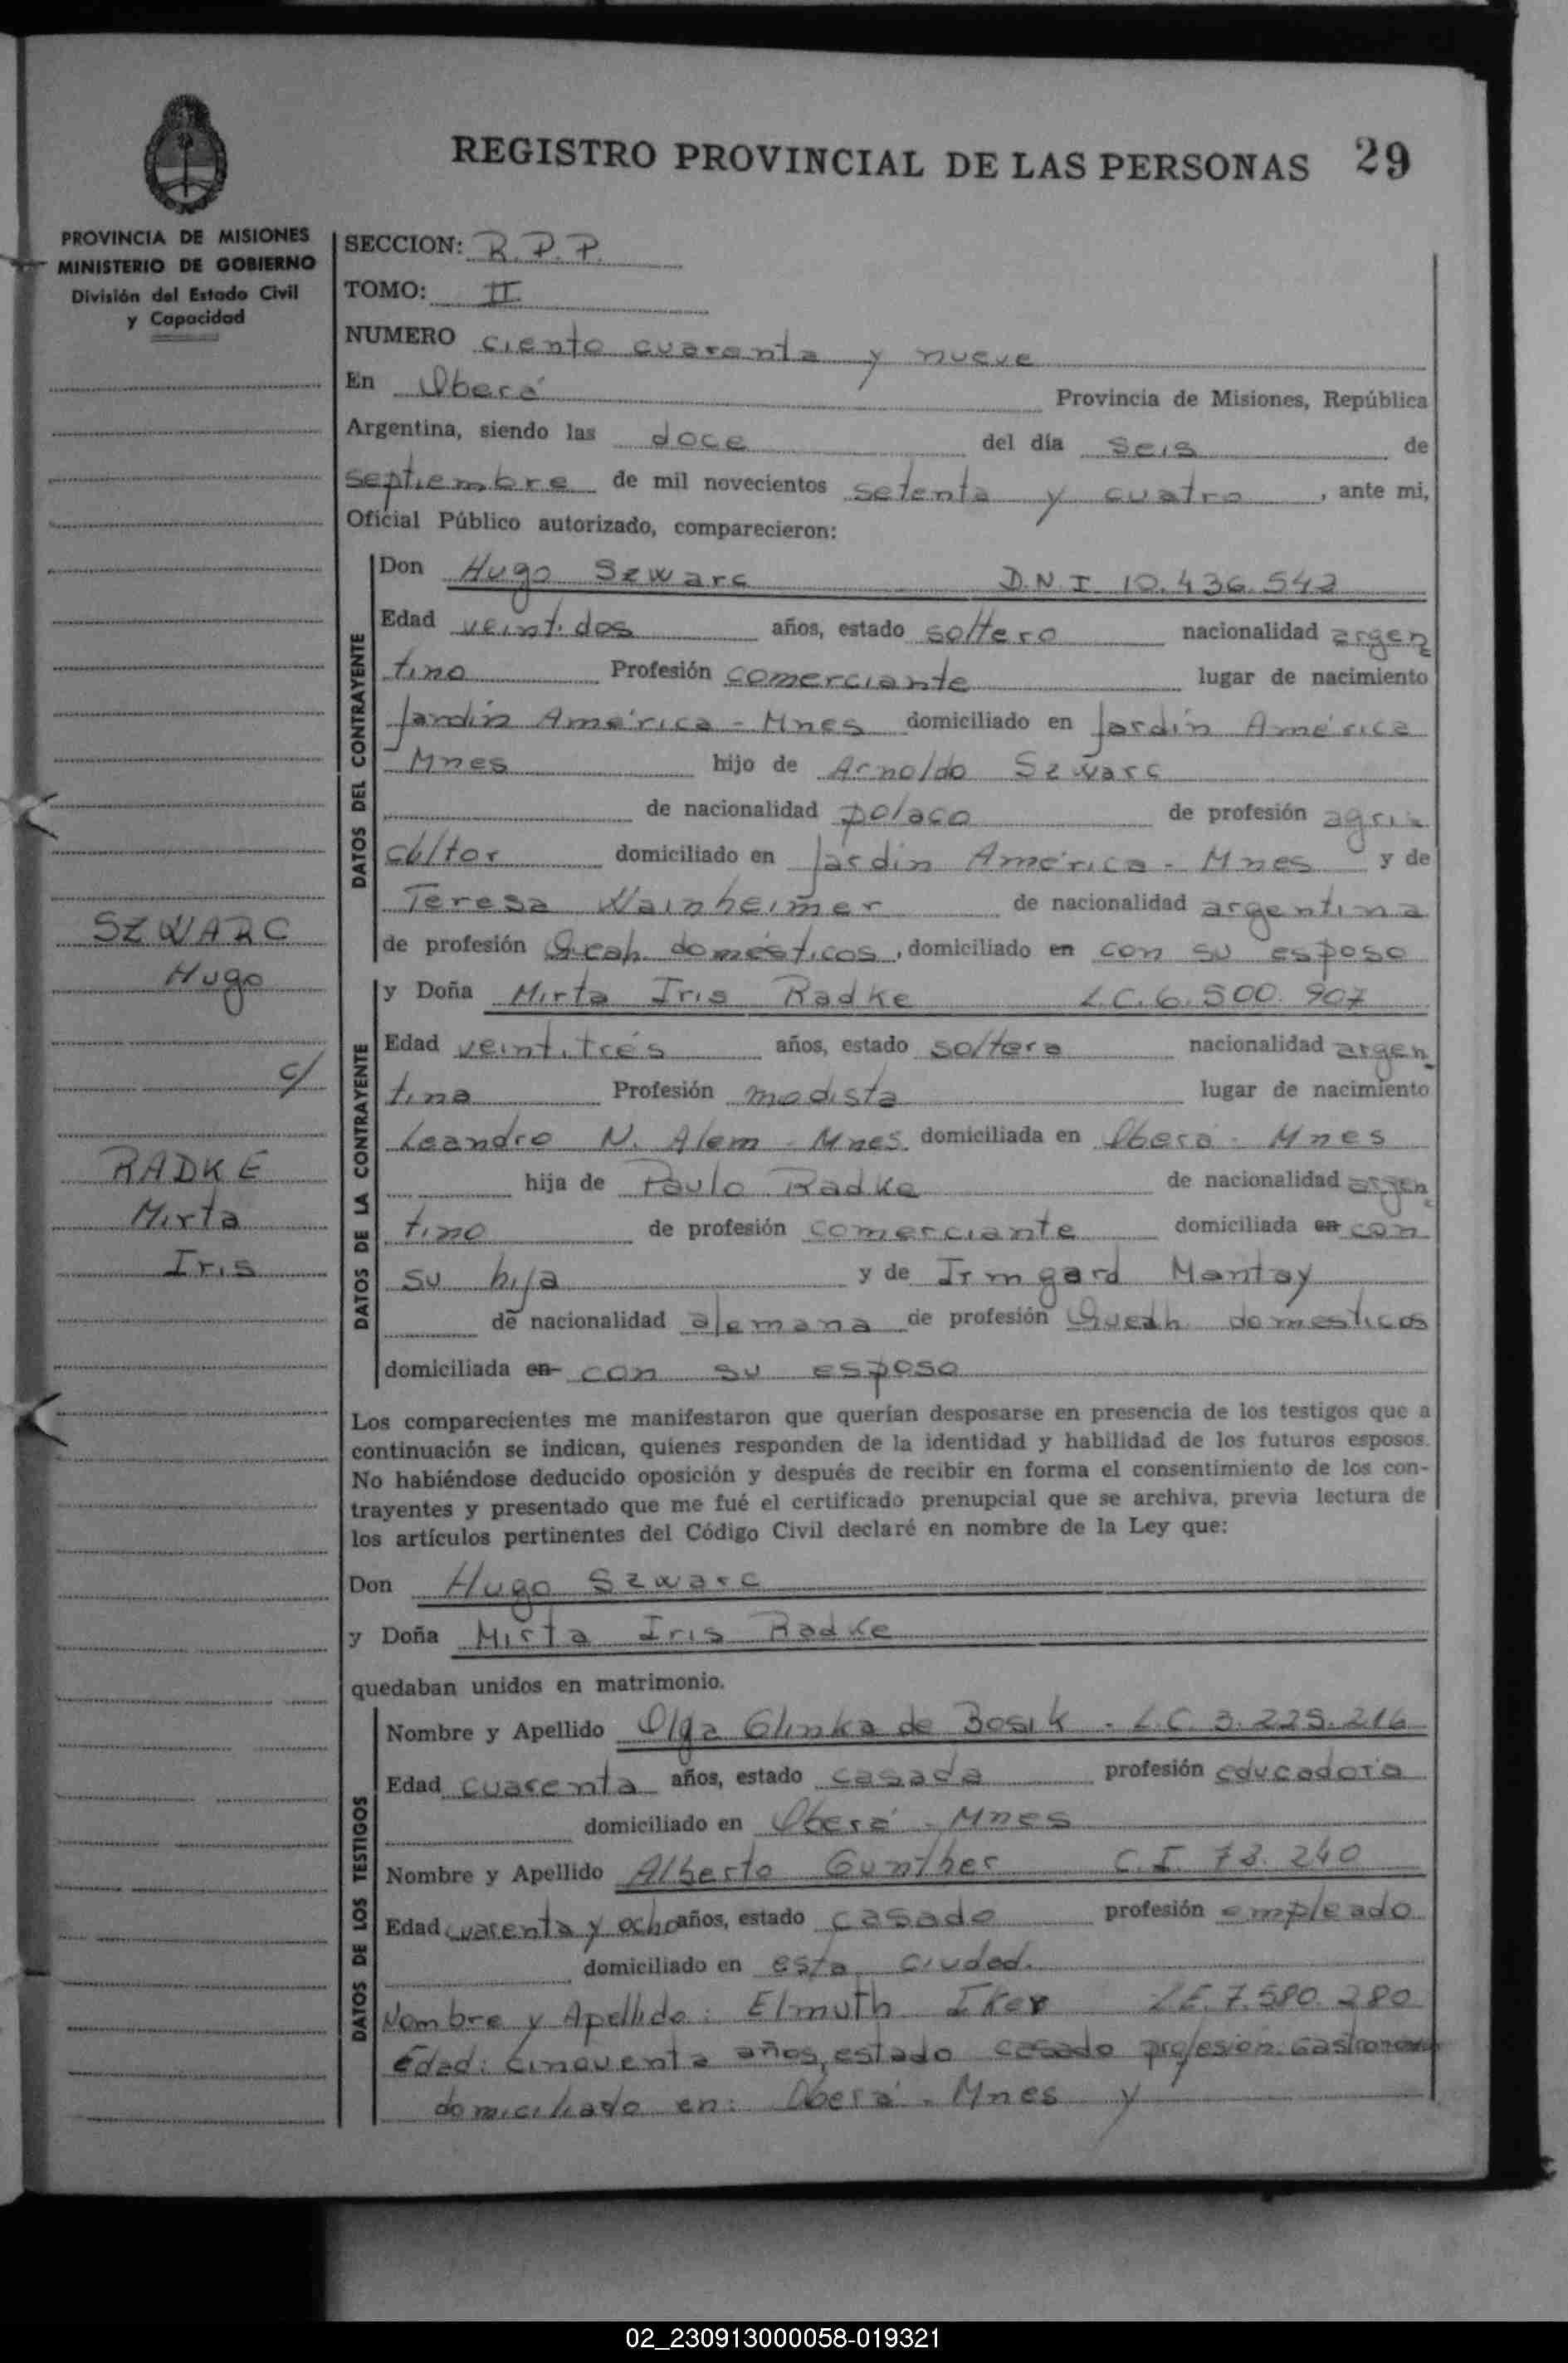 REGISTRO PROVINCIAL DE LAS PERSONAS 29
PROVINCIA DE MISIONES
MINISTERIO DE GOBIERNO
División del Estado Civil
y Capacidad
SECCION: R.P.P.
TOMO: II
NUMERO ciento cuarenta y nueve
En Oberá Provincia de Misiones, República
Argentina, siendo las doce del día seis de
septiembre de mil novecientos setenta y cuatro, ante mi,
Oficial Público autorizado, comparecieron:
DATOS DEL CONTRAYENTE
Don Hugo Szwarc D.N.I 10.436.542
Edad veintidos años, estado soltero nacionalidad argen
tino Profesión comerciante lugar de nacimiento
Jardín América - Mnes domiciliado en Jardín América
Mnes hijo de Arnoldo Szwarc
de nacionalidad polaco de profesión agri
cultor domiciliado en Jardín América - Mnes y de
Teresa Wainheimer de nacionalidad argentina
de profesión domésticos, domiciliado en con su esposo
SZWARC
Hugo
c/
RADKE
Mirta
Iris
DATOS DE LA CONTRAYENTE
y Doña Mirta Iris Radke L.C. 6.500.907
Edad veintitrés años, estado soltera nacionalidad argen
tina Profesión modista lugar de nacimiento
Leandro N. Alem - Mnes domiciliada en Oberá - Mnes
hija de Paulo Radke de nacionalidad argen
tino de profesión comerciante domiciliada en con
su hija y de Irmgard Mantay
de nacionalidad alemana de profesión domesticos
domiciliada en con su esposo
Los comparecientes me manifestaron que querían desposarse en presencia de los testigos que a
continuación se indican, quienes responden de la identidad y habilidad de los futuros esposos.
No habiéndose deducido oposición y después de recibir en forma el consentimiento de los con-
trayentes y presentado que me fué el certificado prenupcial que se archiva, previa lectura de
los artículos pertinentes del Código Civil declaré en nombre de la Ley que:
Don Hugo Szwarc
y Doña Mirta Iris Radke
quedaban unidos en matrimonio.
DATOS DE LOS TESTIGOS
Nombre y Apellido Olga Glinka de Bosik - L.C. 3.225.216
Edad cuarenta años, estado casada profesión educadora
domiciliado en Oberá - Mnes
Nombre y Apellido Alberto Gunther C.I. 78.240
Edad cuarenta y ocho años, estado casado profesión empleado
domiciliado en esta ciudad.
Nombre y Apellido: Elmuth Iker L.E. 7.580.280
Edad: cincuenta años, estado casado profesión
domiciliado en: Oberá - Mnes y
02_230913000058-019321